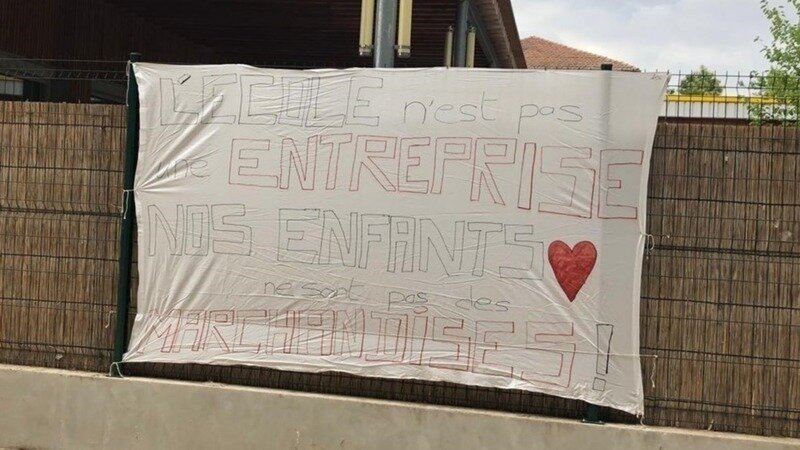 L'ECOLE n'est pas
une ENTREPRISE
NOS ENFANTS
ne sont pas des
MARCHANDISES!